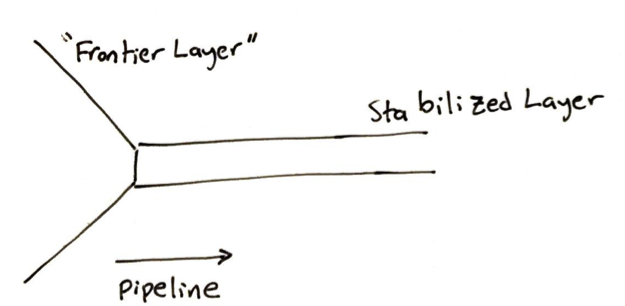 "Frontier Layer"
Stabilized Layer
Pipeline